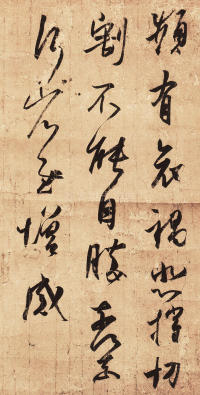 頻有哀禍悲摧切
割不能自勝奈〻
何〻省慰增感